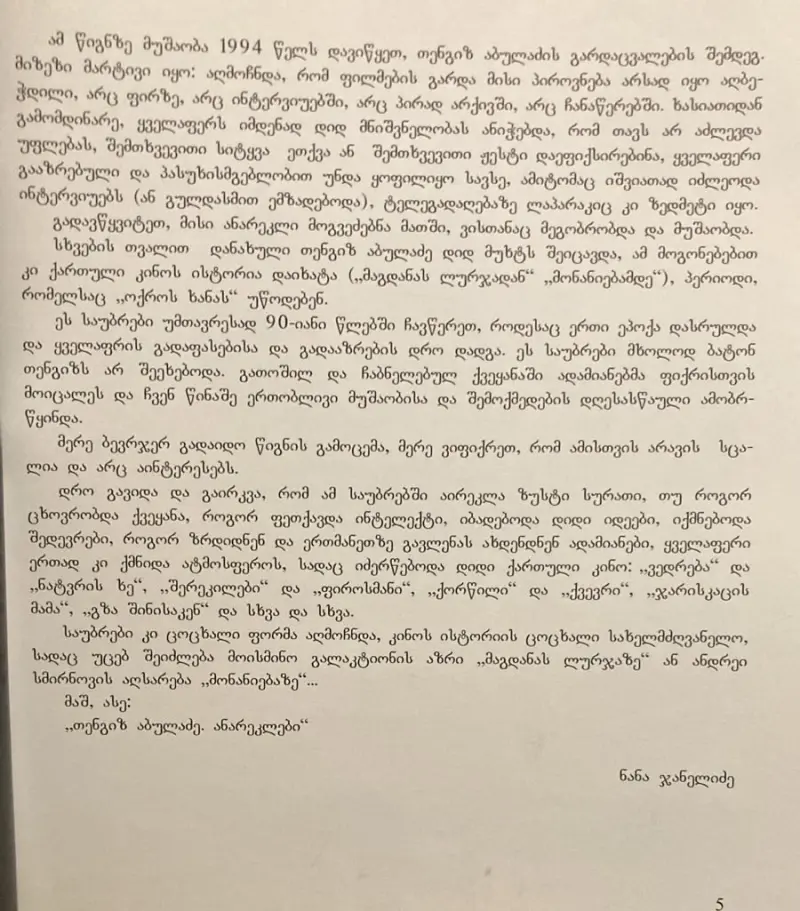 ამ წიგნზე მუშაობა 1994 წელს დავიწყეთ, თენგიზ აბულაძის გარდაცვალების შემდეგ.
მიზეზი მარტივი იყო: აღმოჩნდა, რომ ფილმების გარდა მისი პიროვნება არსად იყო აღბე-
ჭდილი, არც ფირზე, არც ინტერვიუებში, არც პირად არქივში, არც ჩანაწერებში. ხასიათიდან
გამომდინარე, ყველაფერს იმდენად დიდ მნიშვნელობას ანიჭებდა, რომ თავს არ აძლევდა
უფლებას, შემთხვევითი სიტყვა ეთქვა ან შემთხვევითი ჟესტი დაეფიქსირებინა, ყველაფერი
გააზრებული და პასუხისმგებლობით უნდა ყოფილიყო სავსე, ამიტომაც იშვიათად იძლეოდა
ინტერვიუებს (ან გულდასმით ემზადებოდა), ტელეგადაღებაზე ლაპარაკიც კი ზედმეტი იყო.
გადავწყვიტეთ, მისი ანარეკლი მოგვეძებნა მათში, ვისთანაც მეგობრობდა და მუშაობდა.
სხვების თვალით დანახული თენგიზ აბულაძე დიდ მუხტს შეიცავდა, ამ მოგონებებით
კი ქართული კინოს ისტორია დაიხატა („მაგდანას ლურჯადან“ „მონანიებამდე“), პერიოდი,
რომელსაც „ოქროს ხანას“ უწოდებენ.
ეს საუბრები უმთავრესად 90-იანი წლებში ჩავწერეთ, როდესაც ერთი ეპოქა დასრულდა
და ყველაფრის გადაფასებისა და გადააზრების დრო დადგა. ეს საუბრები მხოლოდ ბატონ
თენგიზს არ შეეხებოდა. გათოშილ და ჩაბნელებულ ქვეყანაში ადამიანებმა ფიქრისთვის
მოიცალეს და ჩვენ წინაშე ერთობლივი მუშაობისა და შემოქმედების დღესასწაული ამობრ-
წყინდა.
მერე ბევრჯერ გადაიდო წიგნის გამოცემა, მერე ვიფიქრეთ, რომ ამისთვის არავის სცა-
ლია და არც აინტერესებს.
დრო გავიდა და გაირკვა, რომ ამ საუბრებში აირეკლა ზუსტი სურათი, თუ როგორ
ცხოვრობდა ქვეყანა, როგორ ფეთქავდა ინტელექტი, იბადებოდა დიდი იდეები, იქმნებოდა
შედევრები, როგორ ზრდიდნენ და ერთმანეთზე გავლენას ახდენდნენ ადამიანები, ყველაფერი
ერთად კი ქმნიდა ატმოსფეროს, სადაც იძერწებოდა დიდი ქართული კინო: „ვედრება“ და
„ნატვრის ხე“, „შერეკილები“ და „ფიროსმანი“, „ქორწილი“ და „ქვევრი“, „ჯარისკაცის
მამა“, „გზა შინისაკენ“ და სხვა და სხვა.
საუბრები კი ცოცხალი ფორმა აღმოჩნდა, კინოს ისტორიის ცოცხალი სახელმძღვანელო,
სადაც უცებ შეიძლება მოისმინო გალაკტიონის აზრი „მაგდანას ლურჯაზე“ ან ანდრეი
სმირნოვის აღსარება „მონანიებაზე“...
მაშ, ასე:
„თენგიზ აბულაძე. ანარეკლები“
ნანა ჯანელიძე
5